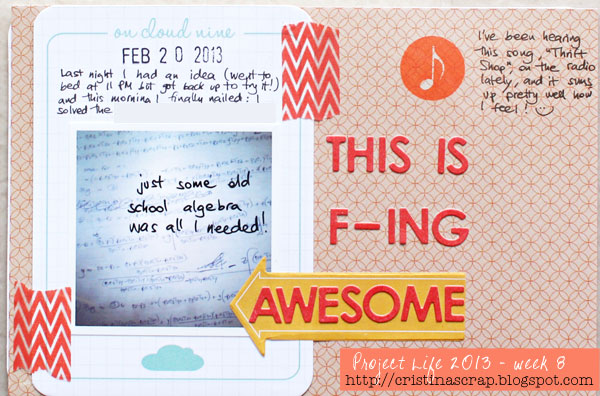 on cloud nine
FEB 20 2013
Last night I had an idea (went to
bed at 11 PM but got back up to try it!)
and this morning I finally nailed: I
solved the
just some old
school algebra
was all I needed!
I've been hearing
this song, "Thrift
Shop", on the radio
lately, and it sums
up pretty well how
I feel! :)
THIS IS
F-ING
AWESOME
Project Life 2013 - week 8
http://cristinascrap.blogspot.com